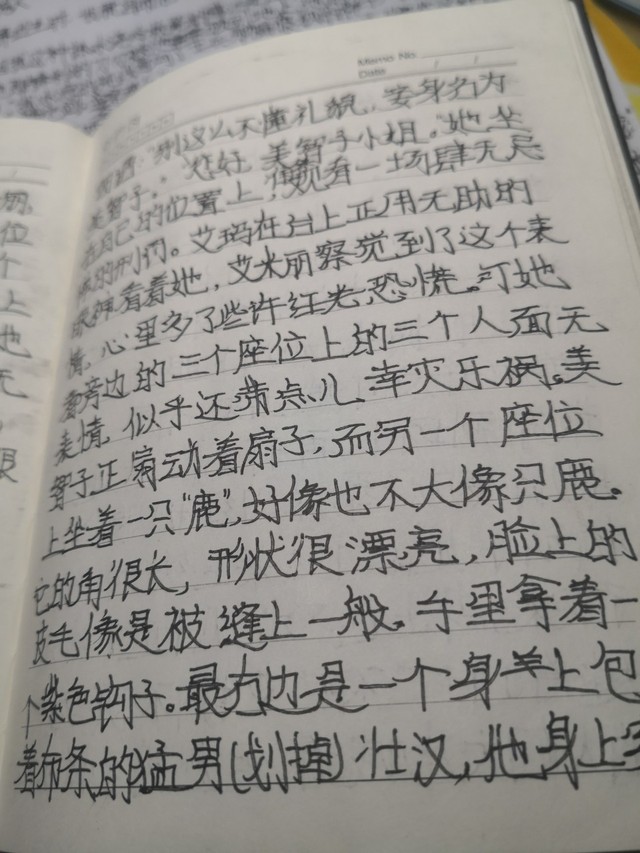 Memo No.
Date / /
"别这么不懂礼貌，妾身名为
美智子。""您好，美智子小姐。"她坐
在自己的位置上，观看一场肆无忌
的刑罚。艾玛在台上正用无助的
眼神看着她，艾米丽察觉到了这个表
情，心里多了些许恐慌。可她
旁边的三个座位上的三个人面无
表情，似乎还带点儿幸灾乐祸。美
智子正扇动着扇子，而另一个座位
上坐着一只"鹿"，好像也不大像只鹿。
它的角很长，形状很漂亮，脸上的
皮毛像是被缝上一般。手里拿着一
个紫色钩子。最右边是一个身上包
着布条的猛男(划掉)壮汉，他身上
位
个
上
也
无